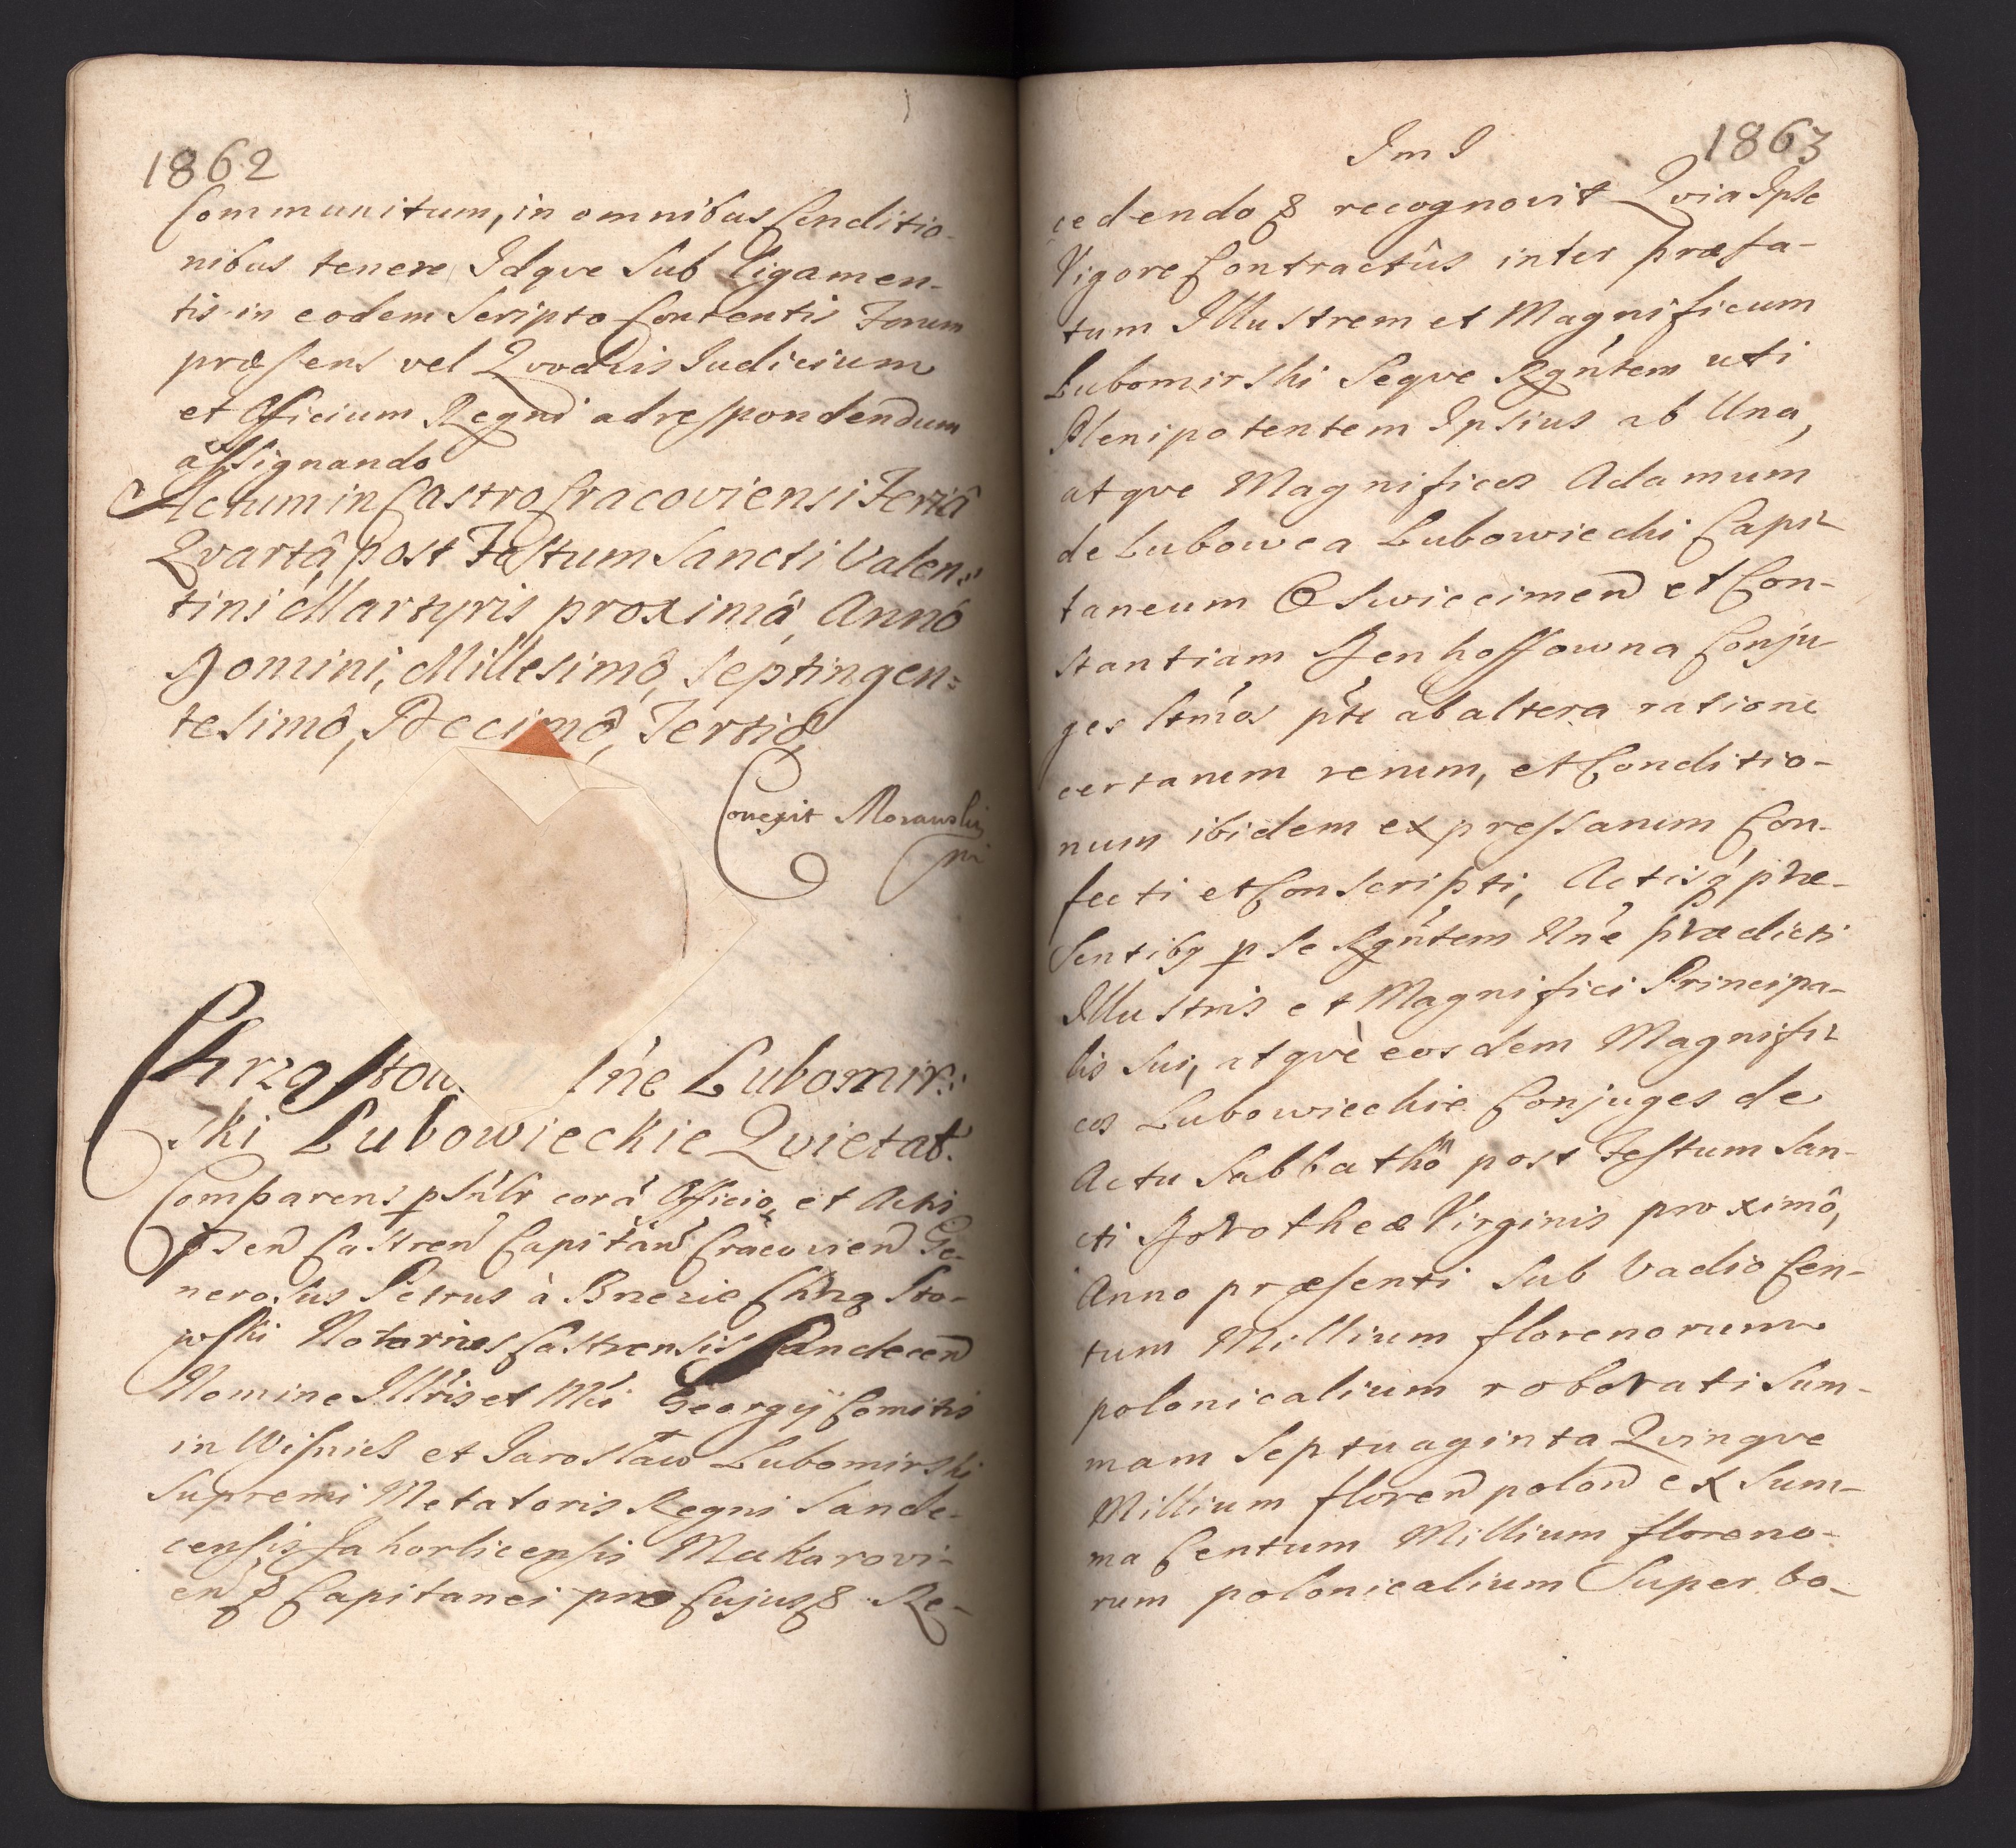 1862
Communitum, in omnibus Conditio-
nibus tenere, Idqve Sub ligamen-
tis in eodem Scripto Contentis Forum
præsens vel Qvodvis Iudicium
et Officium Regni ad respondendum
assignando
Actum in Castro Cracoviensi Feriâ
Qvartâ, post Festum Sancti Valen:
tini Martyris proximâ, Annô
Domini, Millesimô, Septingen:
tesimô, Decimô, Tertiô,
Correxit Morawski
mp
Chrząstow. Lubomir:
ski Lubowieckie Qvietat.
Comparens psńlr corã Officio, et Actis
Castren̄ Capitan̄ Cracovien̄ Ge-
nerosus Petrus à Brzezie Chrząsto-
wski Notarius Castrensis Sandecen̄
Nomine Illr̃is et Mci Georgij Comitis
in Wisnicz et Jarosław Lubomirski
Supremi Metatoris Regni Sande-
censis, Jahorlicensis Makarovi-
en & Capitanei pro Cujus & Re-
Im I 1863
cedendo & recognovit Qvia Ipse
Vigore Contractûs inter præfa-
tum Illustrem et Magnificum
Lubomirski Seqve Rgńtem uti
Plenipotentem Ipsius ab Una,
atqve Magnificos Adamum
de Lubowca Lubowiecki Capi-
taneum Oswiecimen̄ et Con-
stantiam Denhoffowna Conju-
ges ab altera ratione
certarum rerum, et Conditio-
num ibidem expressarum Con-
fecti et Conscripti, Actisq́ præ-
sentibq p Se Rgńtem Nńe prædicti
Illustris et Magnifici Principa-
lis Sui, atqvè eosdem Magnifi-
cos Lubowieckie Conjuges de
Actu Sabbathô post Festum San-
cti Dorotheæ Virginis proximô,
Anno præsenti Sub Vadio Cen-
tum Millium florenorum
polonicalium roborati Sum-
mam Septuaginta Qvinqve
Millium floren̄ polon̄ ex Sum-
ma Centum Millium floreno-
rum polonicalium Super bo-